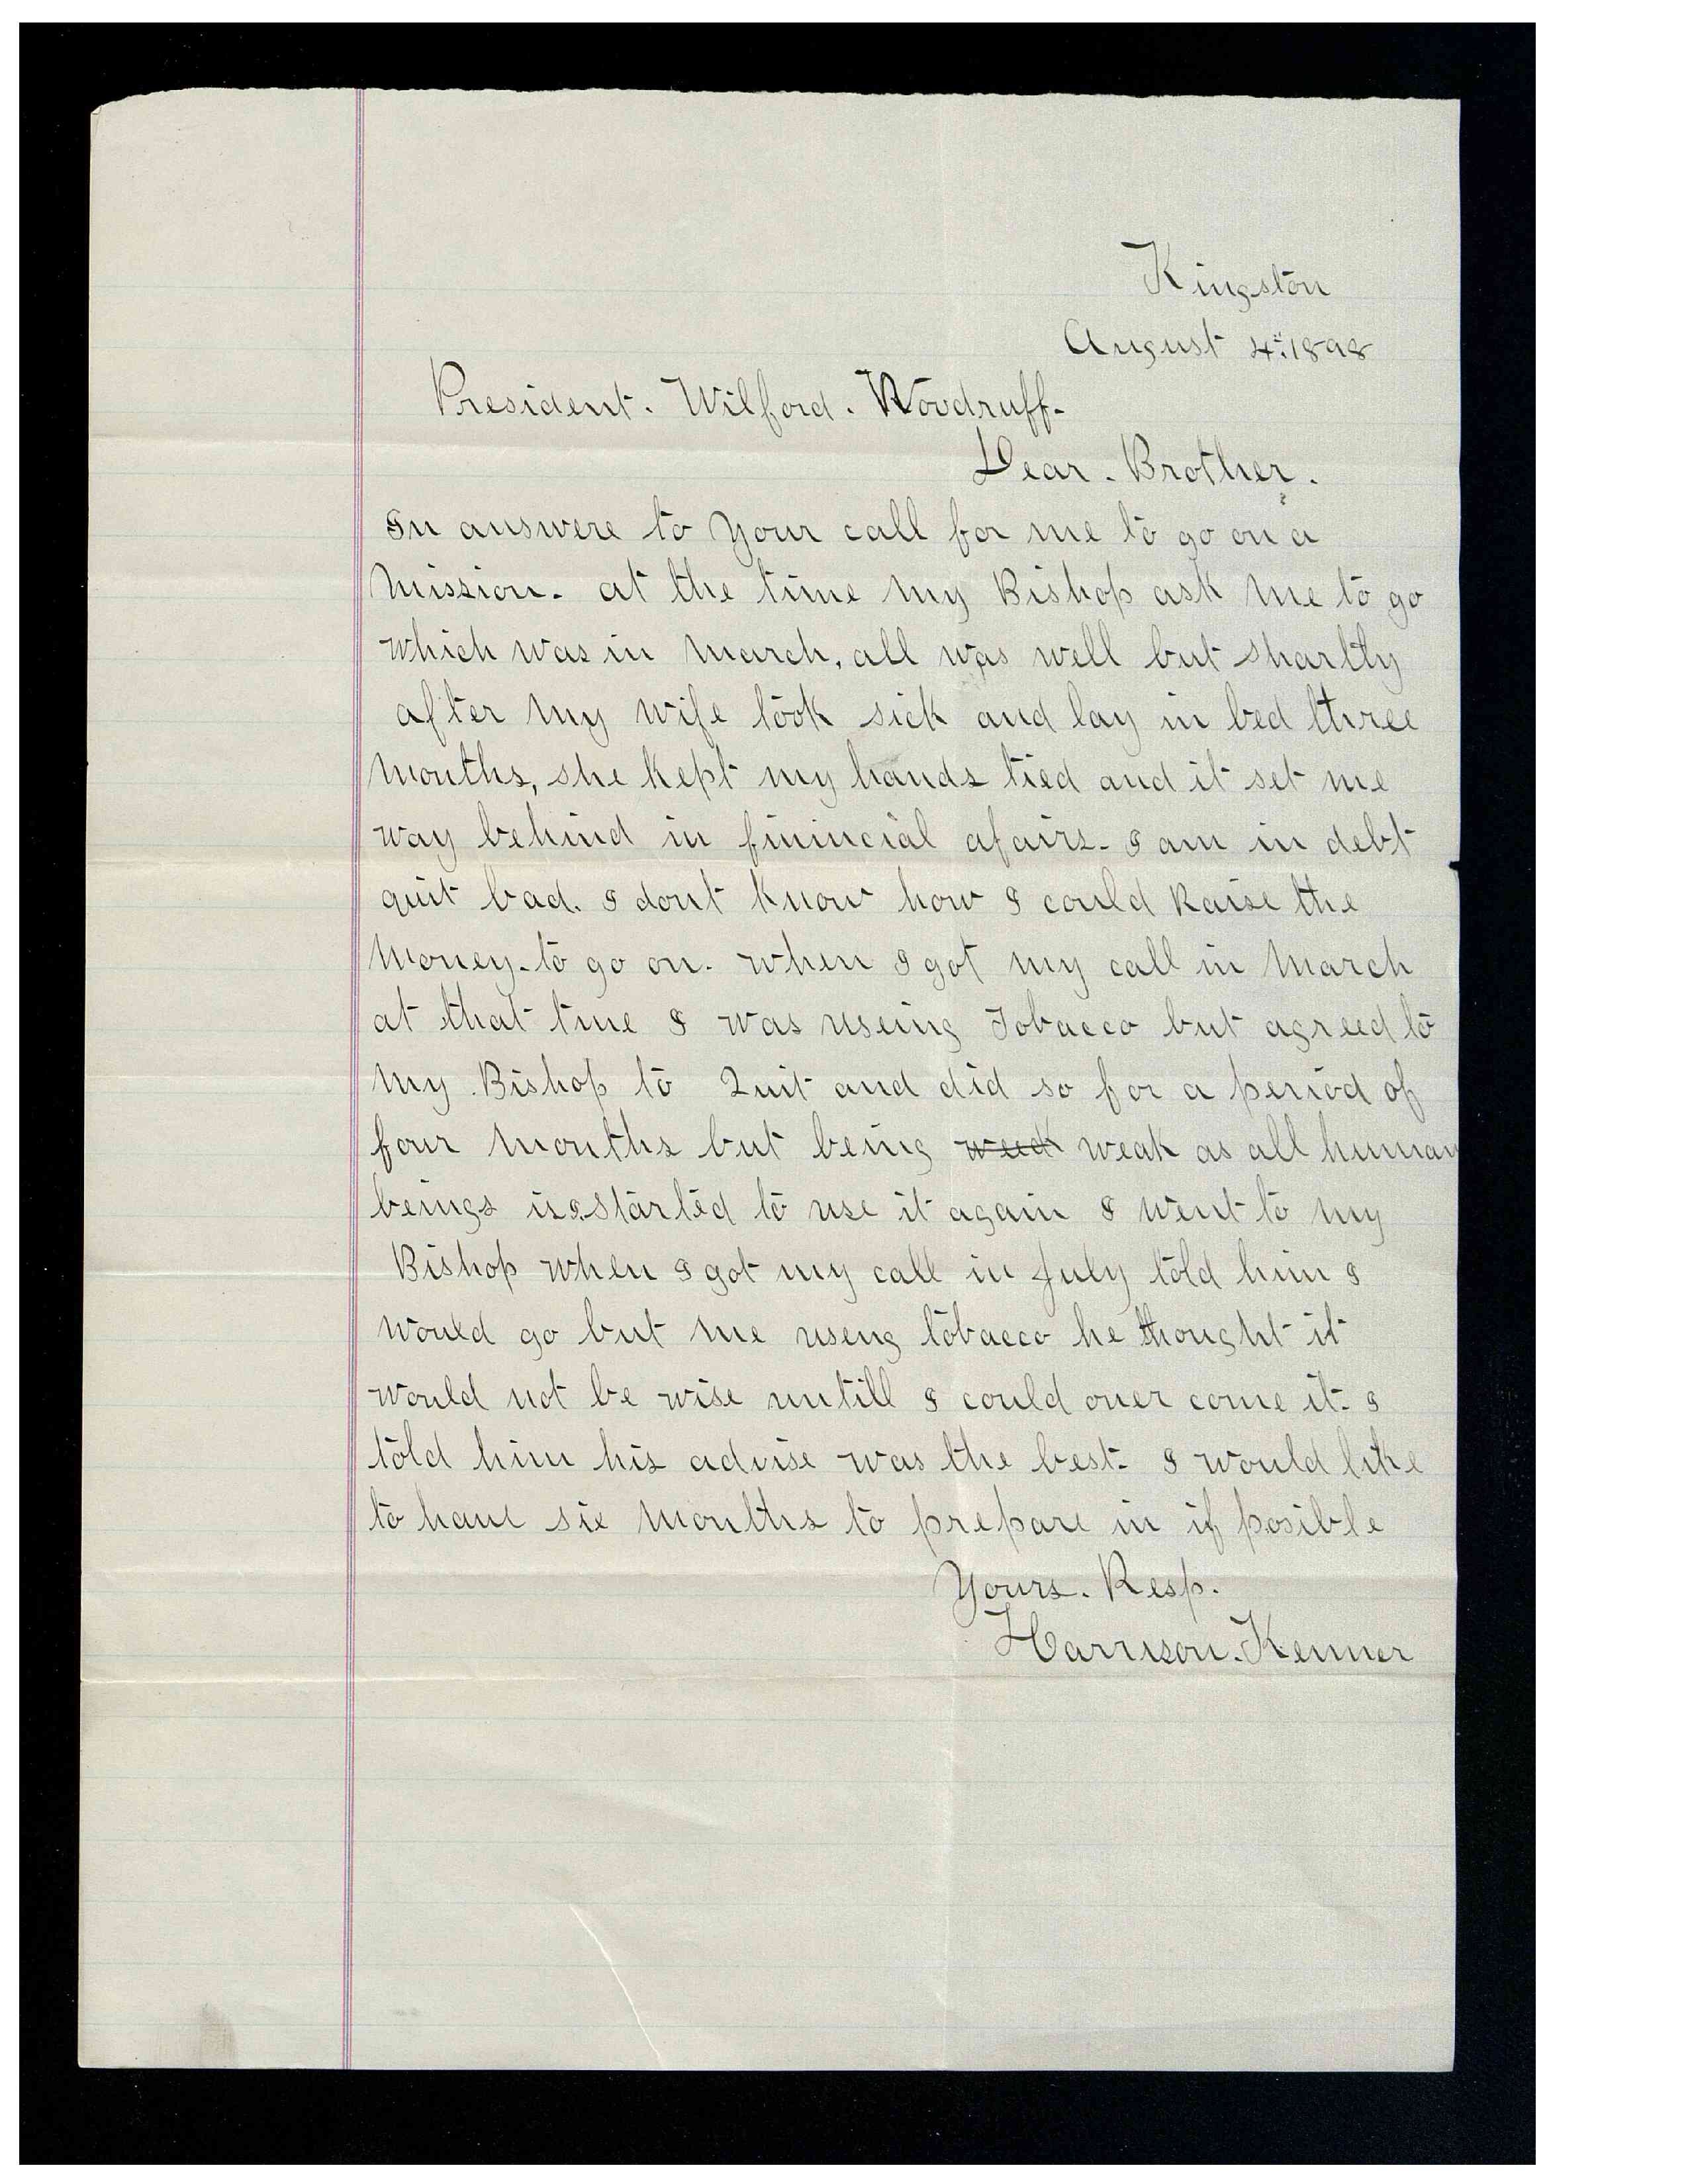 Kingston
August 4th 1898
President. Wilford. Woodruff.
Dear. Brother.
In answere to Your call for me to go on a
Mission. at the time my Bishop ask me to go
which was in March, all was well but shortly
after my wife took sick and lay in bed three
Months, she kept my hands tied and it set me
way behind in finincial afairs. I am in debt
quit bad. I dont know how I could Raise the
Money. to go on. when I got my call in March
at that time I was useing Tobacco but agreed to
my Bishop to Quit and did so for a period of
four Months but being week weak as all human
beings is I started to use it again I went to my
Bishop when I got my call in July told him I
would go but me useng tobacco he thought it
would not be wise untill I could over come it. I
told him his advise was the best. I would like
to have six Months to prepare in if posible
Yours. Resp.
Harrison. Kenner